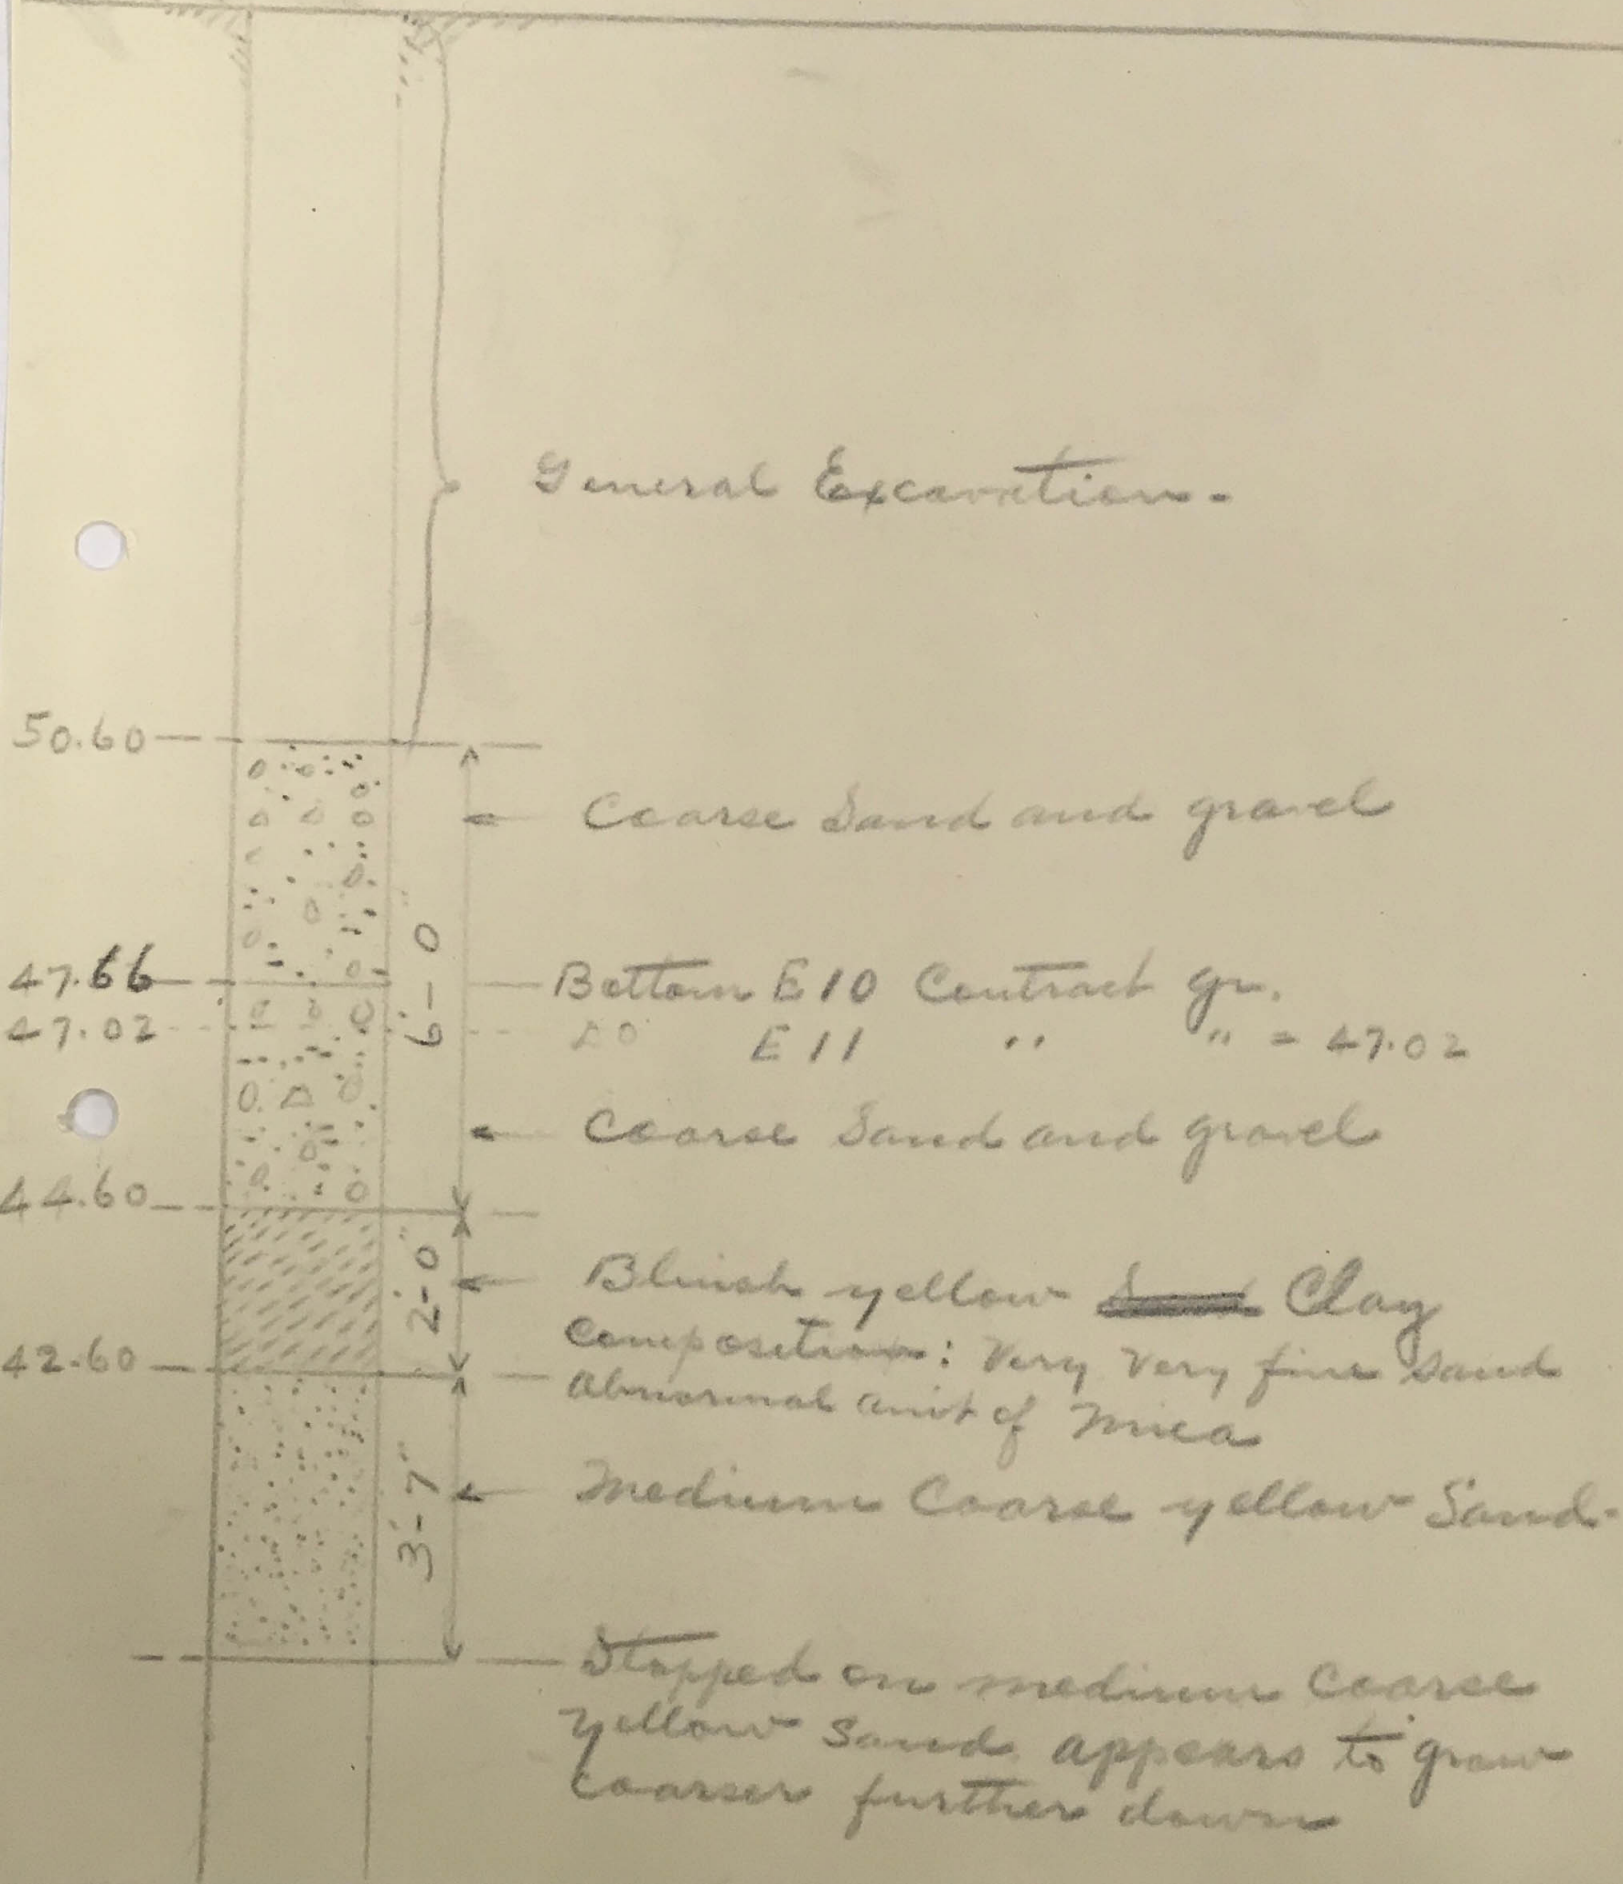 General Excavation.
50.60
Coarse Sand and gravel
6'-0"
47.66 Bottom E10 Contract gr.
47.02 Do E11 " " = 47.02
Coarse Sand and gravel
44.60
2'-0"
Bluish yellow Clay
Composition: Very Very fine sand
42.60
Abnormal amt of Mica
3'-7"
Medium Coarse yellow Sand-
Stopped on medium Coarse
yellow sand appears to grow
coarser further down